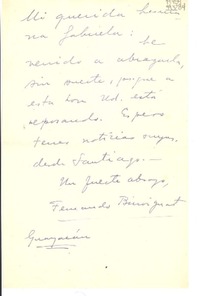 Mi querida herma
na Gabriela: he
venido a abrazarla,
sin suerte, porque a
esta hora Ud. está
reposando. Espero
tener noticias suyas,
desde Santiago.—
Un fuerte abrazo,
Fernando Binvignat
Guayacán